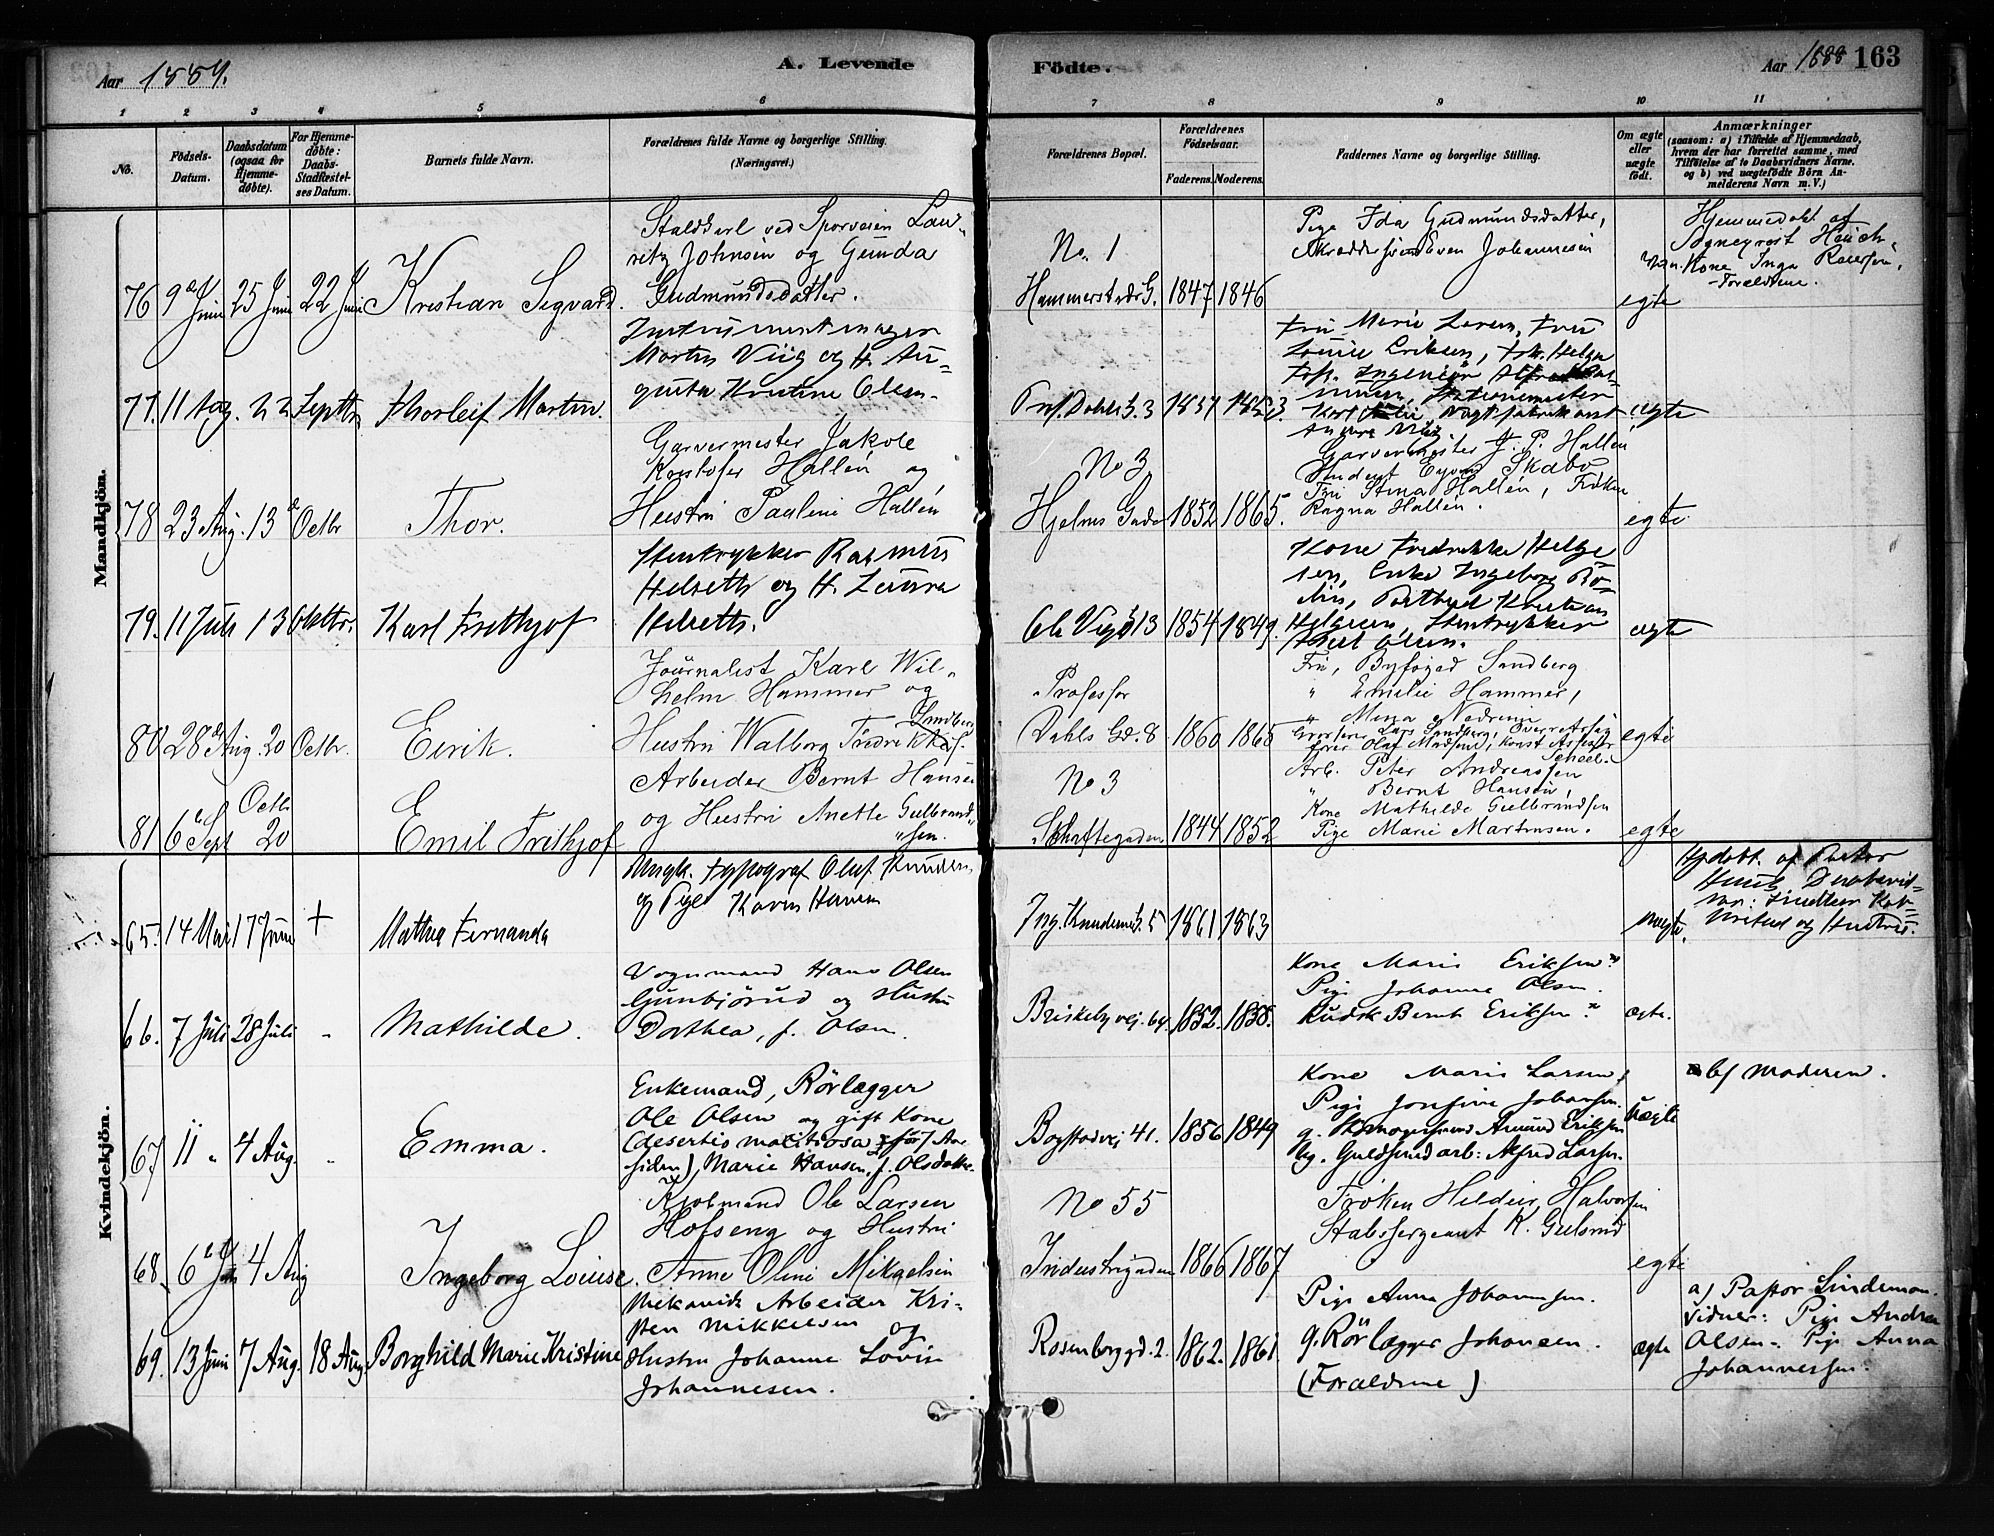 Aar 1889.
A. Levende
Födte.
Aar 1888 163
1 2 3 4 5 6 7 8 9 10 11
No.
Födsels-Datum.
Daabsdatum (ogsaa for Hjemme-döbte).
For Hjemme-döbte: Daabs-Stadfæstel-ses Datum.
Barnets fulde Navn.
Forældrenes fulde Navne og borgerlige Stilling. (Næringsvei.)
Forældrenes Bopæl.
Forældrenes Födselsaar.
Faderens. Moderens.
Faddernes Navne og borgerlige Stilling.
Om ægte eller uægte födt.
Anmærkninger
(saasom: a) i Tilfælde af Hjemmedaab,
hvem der har forrettet samme, med
Tilföielse af to Daabsvidners Navne.
og b) ved uægtefödte Börn An-
melderens Navn m. V.)
Mandkjön.
76 9de Juni 25 Juni 22 Juni Kristian Sigvard.
Staldkarl ved Sporveien Lau-
ritz Johnsen og Gunda
Gudmundsdatter.
No. 1
Hammerstads G. 1847 1846
Pige Ida Gudmundsdatter,
Johannesen
egte
Hjemmedøbt af
Sogneprest Heuch,
Kone Inga
Forældrene.
77. 11 Aug. 22 Septbr Thorleif Martin.
Instrumentmager
Morten Viig og H. Au-
gusta Kristine Olsen.
Prof. Dahls G. 3
Fru Marie Larsen, Fru
Louise Eriksen, Frk. Helga
Ingeniør
Stationsmester
Karl
ægte
78 23 Aug. 13de Octbr Thor.
Garvermester Jakob
Kristofer Hallén og
Hustru Pauline Hallén
No 3
Hjelms Gade 1852 1865.
Garvermester J. P. Hallén
Student Eyvind Skabo
Fru Stina Hallén, Frøken
Ragna Hallén.
egte.
79. 11 Juli 13 Oktbr. Karl Frithjof
Stentrykker Rasmus
Helseth og H. Laura
Helseth.
1854 1849.
Kone Fredrikke Helge
sen, Enke Ingeborg Bo-
Postbud Kristian
Helgesen, Stentrykker
Olsen.
ægte
80 28de Aug. 20 Octbr. Eirik.
Journalist Karl Wil-
helm Hammer og
Hustru Walborg Fredrikke f. Sandberg
Professor
Dahls Gd. 8 1860 1865
Fru, Byfoged Sandberg
" Emilie Hammer,
" Mina
Lars Sandberg, Overretssag
fører Olaf Madsen, Konst Assessor
Scheel.
egte
81 6te Sept Octbr. 20 Emil Frithjof
Arbeider Bernt Hansen
og Hustru Anette Gulbrand-
sen.
No 3
Schaftegaden. 1844 1852
Arb. Peter Andreassen
" Bernt Hansen,
Kone Mathilde Gulbrandsen
Pige Marie Martinsen.
egte
Kvindekjön.
65. 14 Mai 17 Juni + Mathea Fernanda
Ungk. Typograf Oluf Knudsen
og Pige Karen Hansen
Ing. Knudsens G. 5 1861 1863
uægte.
Hjdøbt. af Pastor
66. 7 Juli 28 Juli " Mathilde.
Vognmand Hans Olsen
Gunbjörud og Hustru
Dorthea, f. Olsen.
Briskebyvej. 64. 1852. 1858.
Kone Maris Eriksen
Pige Johanne Olsen.
Kudsk Bernt Eriksen
ægte.
67 11 " 4 Aug. " Emma.
Enkemand, Rörlægger
Ole Olsen og gift Kone
(desertio malitiosa för 7 Aar
siden), Marie Hansen, f. Olsdatter.
Bogstadvej 41. 1856 1849
Kone Maris Larsen,
Pige Josefine Johansen.
g. Amund Eriksen
Ug. Guldsmedarb: Alfred Larsen.
Uægte
b) Moderen.
68. 6te Juli 4 Aug Ingeborg Louise.
Kjøbmand Ole Larsen
Hofseng og Hustru
Anne Oline Mikaelsen
No 55
Industrigaden 1866 1867
Frøken Hildeir Halvorsen
Stabssergeant K. Gulsrud
egte
69. 13 Juni 7 Aug. 18 Aug. Borghild Marie Kristine
Mekanisk Arbeider Kri-
sten Mikkelsen og
Hustru Johanne Lovise
Johannesen.
Rosenborggd. 2. 1862. 1861.
Pige Anna Johannesen.
g. Rörlægger Johansen.
(Forældrene)
ægte
a) Pastor Lindeman.
Vidner: Pige Andrea
Olsen. Pige Anna
Johannessen.